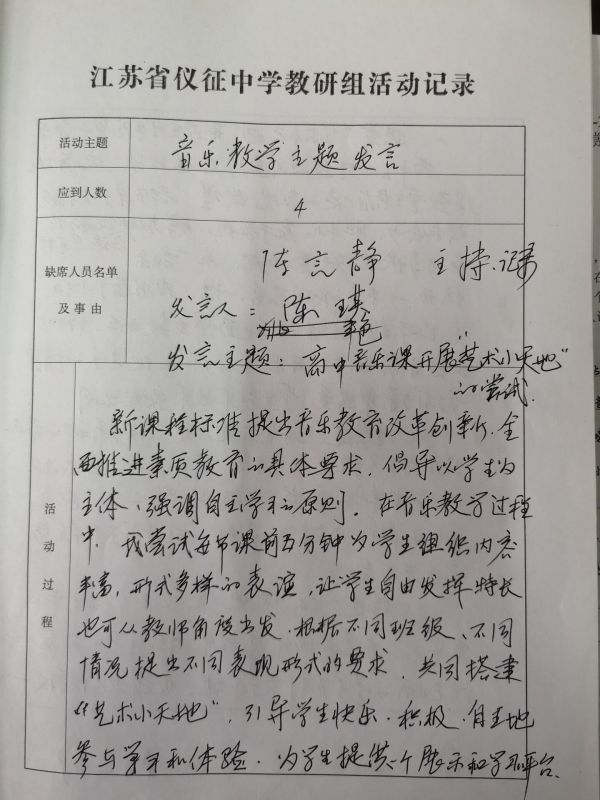 江苏省仪征中学教研组活动记录
活动主题
音乐教学主题发言
应到人数
4
缺席人员名单
及事由
陈言静 主持、记录
发言人：陈琪
发言主题：高中音乐课开展“艺术小天地”
的尝试
活动过程
新课程标准提出音乐教育改革创新，全
面推进素质教育的具体要求，倡导以学生为
主体、强调自主学习的原则。在音乐教学过程
中，我尝试每节课前五分钟为学生组织内容
丰富，形式多样的表演，让学生自由发挥特长
也可从教师角度出发，根据不同班级、不同
情况提出不同表现形式的要求，共同搭建
“艺术小天地”，引导学生快乐、积极、自主地
参与学习和体验，为学生提供一个展示和学习平台。